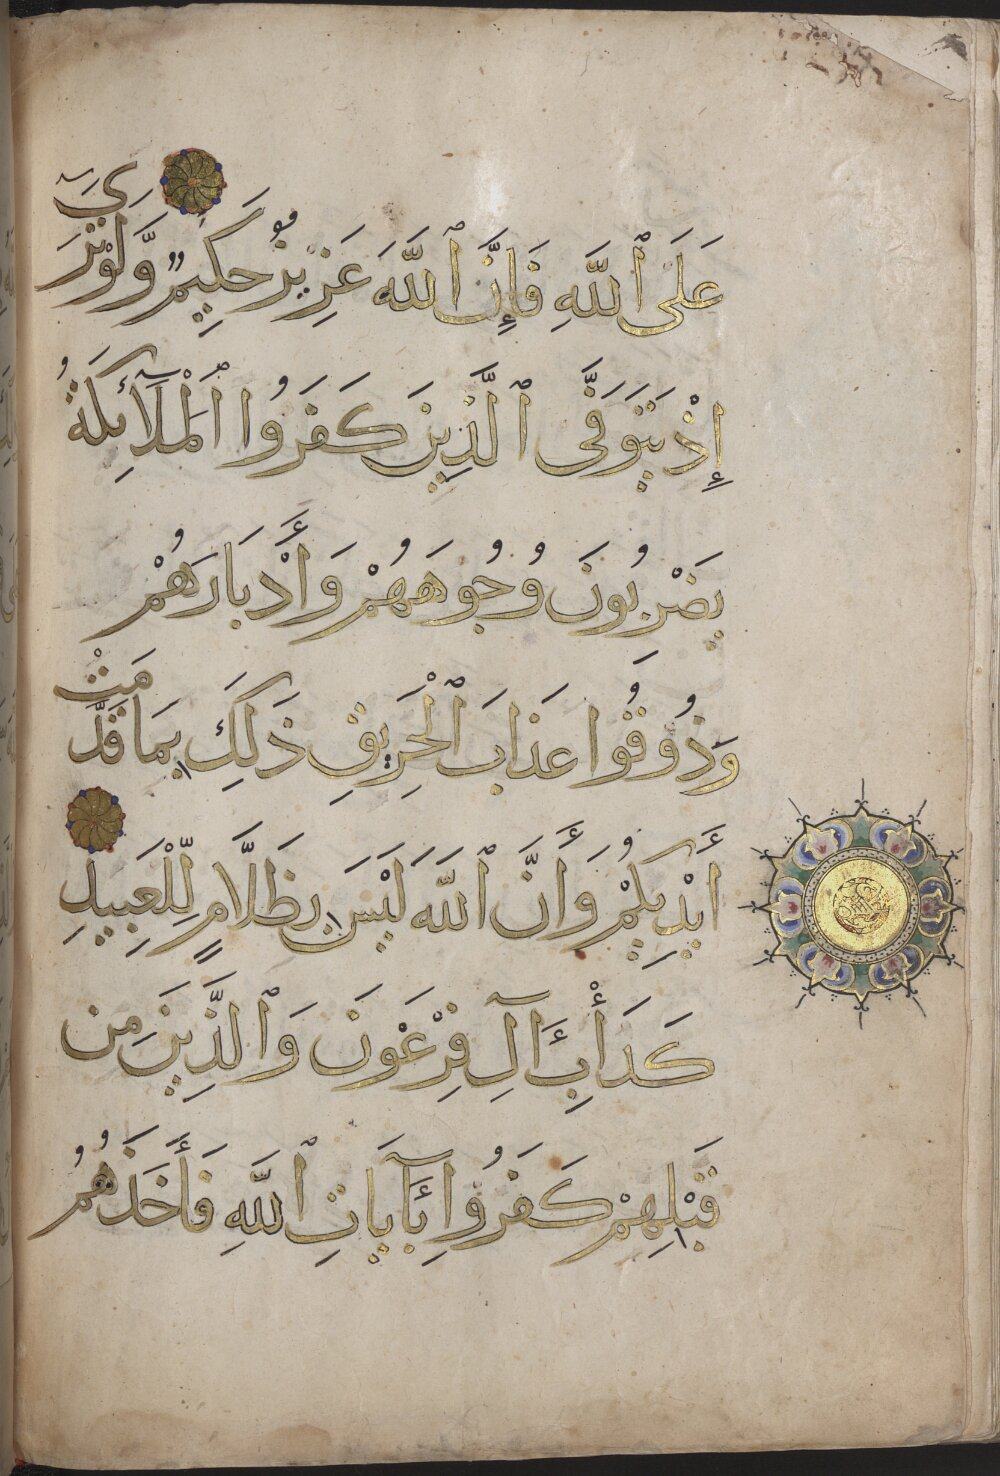 عَلَى ٱللَّهِ فَإِنَّ ٱللَّهَ عَزِيزٌ حَكِيمٌ وَلَوْ تَرَىٰ
إِذْ يَتَوَفَّى ٱلَّذِينَ كَفَرُوا ٱلْمَلَآئِكَةُ
يَضْرِبُونَ وُجُوهَهُمْ وَأَدْبَارَهُمْ
وَذُوقُوا عَذَابَ ٱلْحَرِيقِ ذَلِكَ بِمَا قَدَّمَتْ
أَيْدِيكُمْ وَأَنَّ ٱللَّهَ لَيْسَ بِظَلَّامٍ لِّلْعَبِيدِ
كَدَأْبِ ءَالِ فِرْعَوْنَ وَٱلَّذِينَ مِن
قَبْلِهِمْ كَفَرُوا بِئَآيَاتِ ٱللَّهِ فَأَخَذَهُمُ